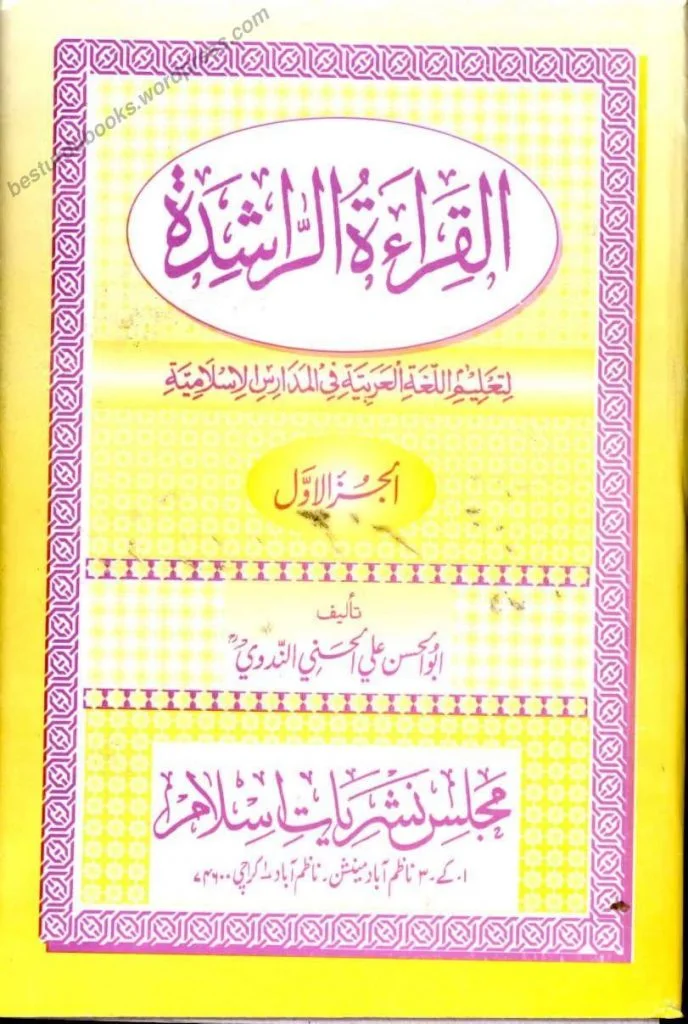 besturdubooks.wordpress.com
القِرَاءَةُ الرَّاشِدَة
لتَعْلِيْمِ اللّغَةِ العَرَبِيَّةِ فِي المَدَارِسِ الاِسْلَامِيَّةِ
الجُزءُ الاوَّل
تأليف
ابُو الحسن علي الحسَني النّدوي
مجلس نشریاتِ اسلام
۱۔ کے ۔ ۳ ناظم آباد مینشن ۔ ناظم آباد ۱ کراچی ۷۴۶۰۰